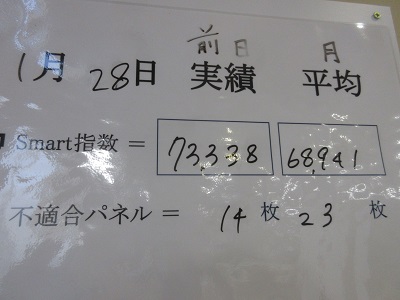 前日 月
1月 28日 実績 平均
Smart指数 = 73,338 68,941
不適合パネル = 14 枚 23 枚